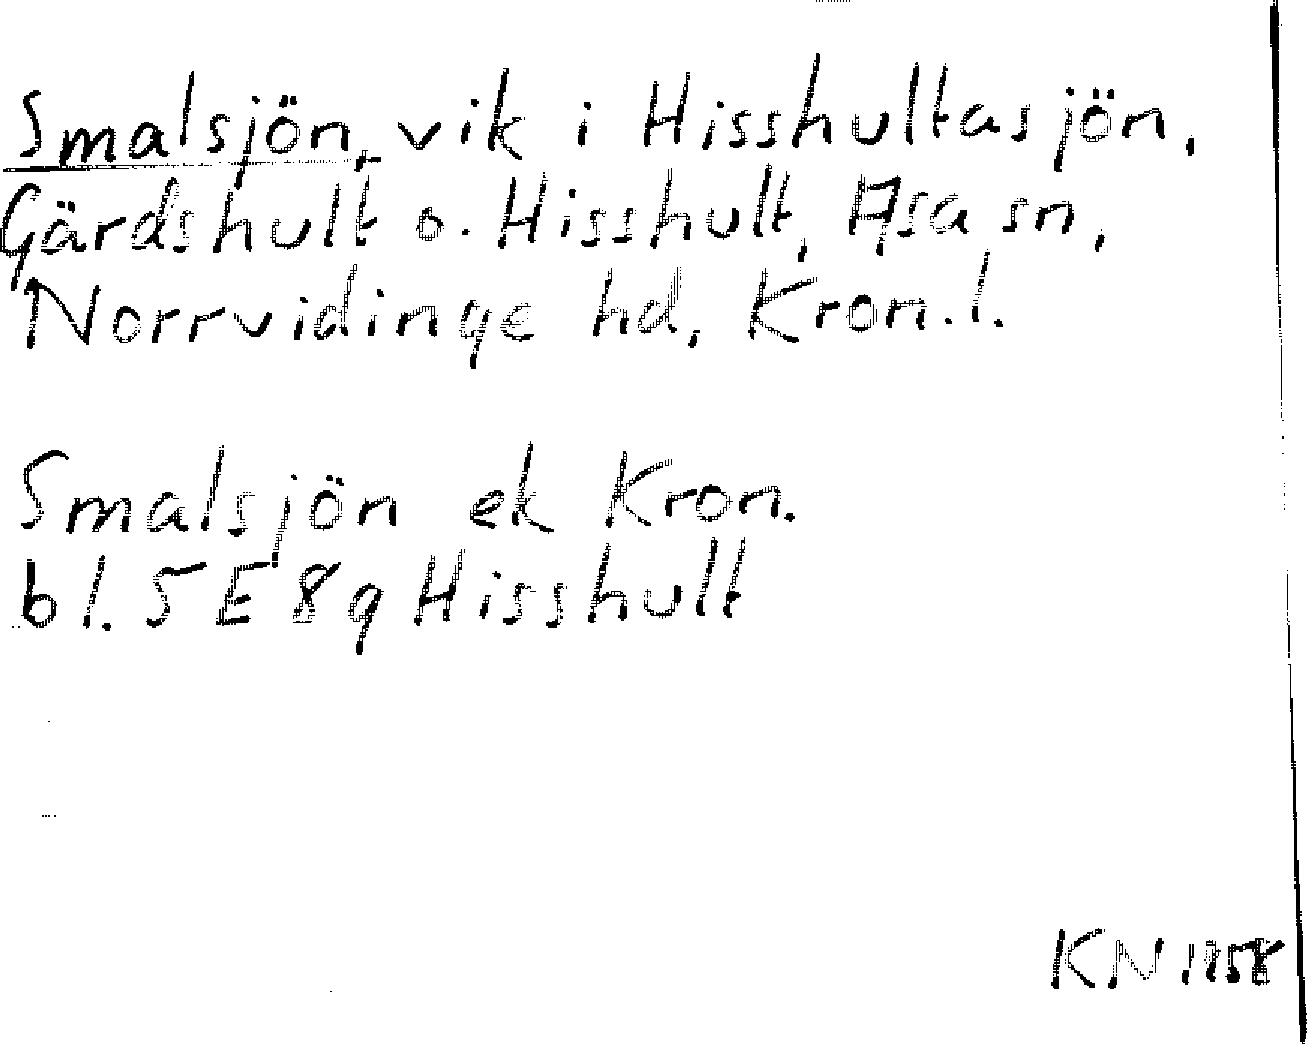 Smalsjön, vik i Hisshultasjön,
Gärdshult o. Hisshult, Asa sn,
Norrvidinge hd, Kron. l.
Smalsjön ek Kron.
bl. 5 E 8 q Hisshult
KN